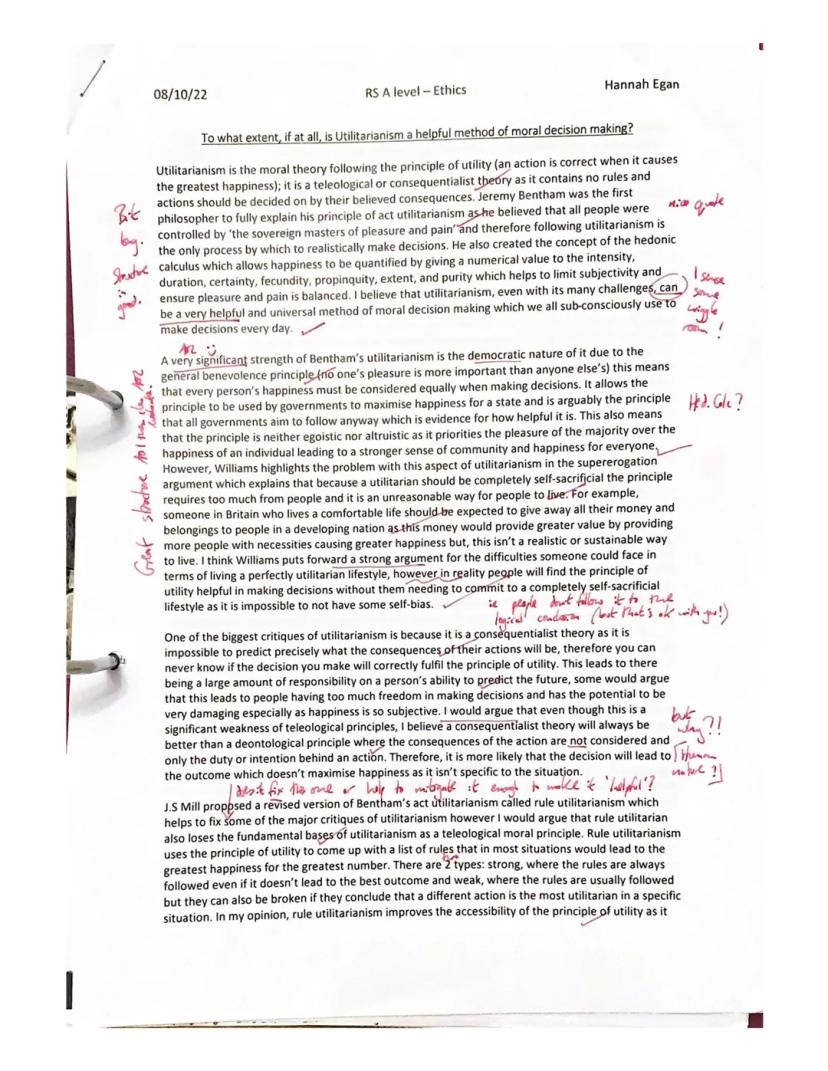 08/10/22
RS A level – Ethics
Hannah Egan
To what extent, if at all, is Utilitarianism a helpful method of moral decision making?
Utilitarianism is the moral theory following the principle of utility (an action is correct when it causes
the greatest happiness); it is a teleological or consequentialist theory as it contains no rules and
actions should be decided on by their believed consequences. Jeremy Bentham was the first
philosopher to fully explain his principle of act utilitarianism as he believed that all people were
controlled by 'the sovereign masters of pleasure and pain' and therefore following utilitarianism is
the only process by which to realistically make decisions. He also created the concept of the hedonic
calculus which allows happiness to be quantified by giving a numerical value to the intensity,
duration, certainty, fecundity, propinquity, extent, and purity which helps to limit subjectivity and
ensure pleasure and pain is balanced. I believe that utilitarianism, even with its many challenges, can
be a very helpful and universal method of moral decision making which we all sub-consciously use to
make decisions every day.
nice quote
Bit
long.
Structure
is
good.
I sense
some
wiggle
room!
AO2
A very significant strength of Bentham's utilitarianism is the democratic nature of it due to the
general benevolence principle (no one's pleasure is more important than anyone else's) this means
that every person's happiness must be considered equally when making decisions. It allows the
principle to be used by governments to maximise happiness for a state and is arguably the principle
that all governments aim to follow anyway which is evidence for how helpful it is. This also means
that the principle is neither egoistic nor altruistic as it priorities the pleasure of the majority over the
happiness of an individual leading to a stronger sense of community and happiness for everyone.
However, Williams highlights the problem with this aspect of utilitarianism in the supererogation
argument which explains that because a utilitarian should be completely self-sacrificial the principle
requires too much from people and it is an unreasonable way for people to live. For example,
someone in Britain who lives a comfortable life should be expected to give away all their money and
belongings to people in a developing nation as this money would provide greater value by providing
more people with necessities causing greater happiness but, this isn't a realistic or sustainable way
to live. I think Williams puts forward a strong argument for the difficulties someone could face in
terms of living a perfectly utilitarian lifestyle, however in reality people will find the principle of
utility helpful in making decisions without them needing to commit to a completely self-sacrificial
lifestyle as it is impossible to not have some self-bias.
Hed. Calc?
Great structure AO1 then clear AO2
ie people don't follow it to the
logical conclusion (but that's ok with you!)
One of the biggest critiques of utilitarianism is because it is a consequentialist theory as it is
impossible to predict precisely what the consequences of their actions will be, therefore you can
never know if the decision you make will correctly fulfil the principle of utility. This leads to there
being a large amount of responsibility on a person's ability to predict the future, some would argue
that this leads to people having too much freedom in making decisions and has the potential to be
very damaging especially as happiness is so subjective. I would argue that even though this is a
significant weakness of teleological principles, I believe a consequentialist theory will always be
better than a deontological principle where the consequences of the action are not considered and
only the duty or intention behind an action. Therefore, it is more likely that the decision will lead to
the outcome which doesn't maximise happiness as it isn't specific to the situation.
but
why?!
[Human
nature?]
does it fix this one or help to mitigate it enough to make it 'helpful'?
J.S Mill proposed a revised version of Bentham's act utilitarianism called rule utilitarianism which
helps to fix some of the major critiques of utilitarianism however I would argue that rule utilitarian
also loses the fundamental bases of utilitarianism as a teleological moral principle. Rule utilitarianism
uses the principle of utility to come up with a list of rules that in most situations would lead to the
greatest happiness for the greatest number. There are 2 types: strong, where the rules are always
two
followed even if it doesn't lead to the best outcome and weak, where the rules are usually followed
but they can also be broken if they conclude that a different action is the most utilitarian in a specific
situation. In my opinion, rule utilitarianism improves the accessibility of the principle of utility as it